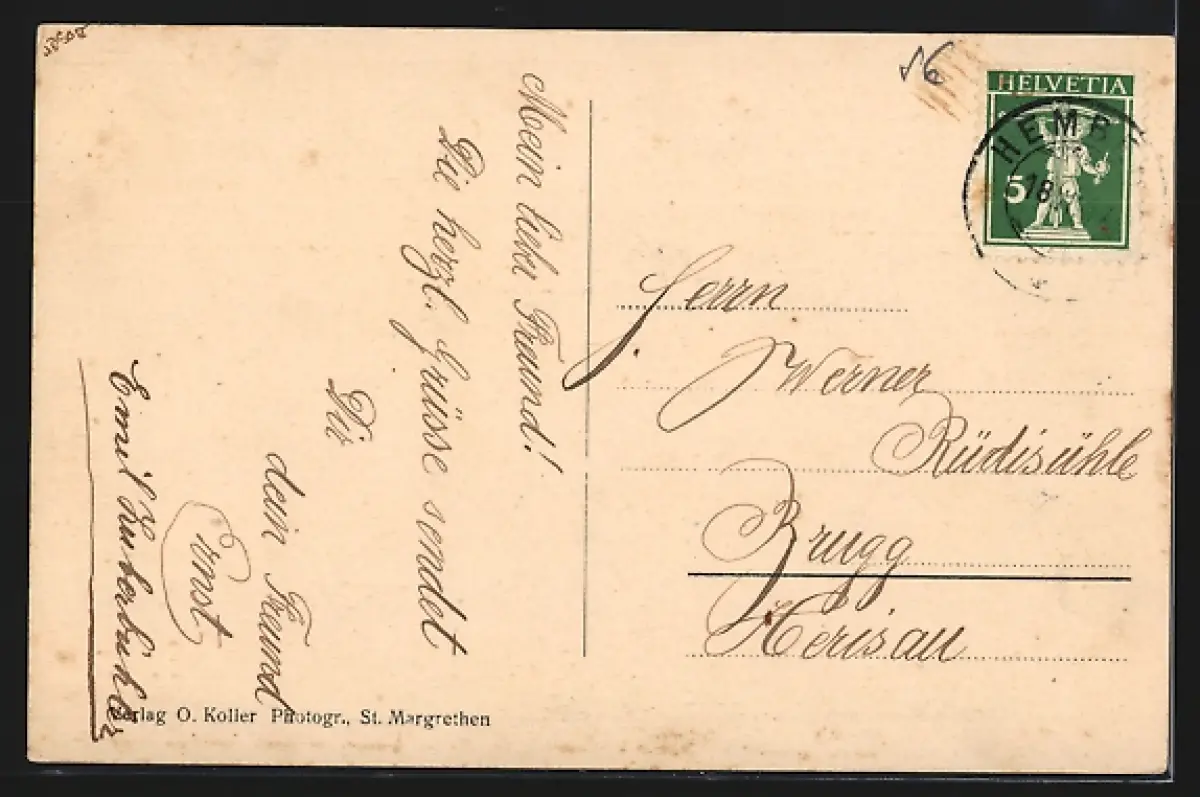 Mein liebr Freund!
Die herzl. Grüsse sendet
Dir
dein Freund
Ernst
Emil
Verlag O. Koller Photogr., St. Margrethen
56
HELVETIA
5
HEMB
18
Herrn
Werner
Rüdisühle
Brugg
Herisau